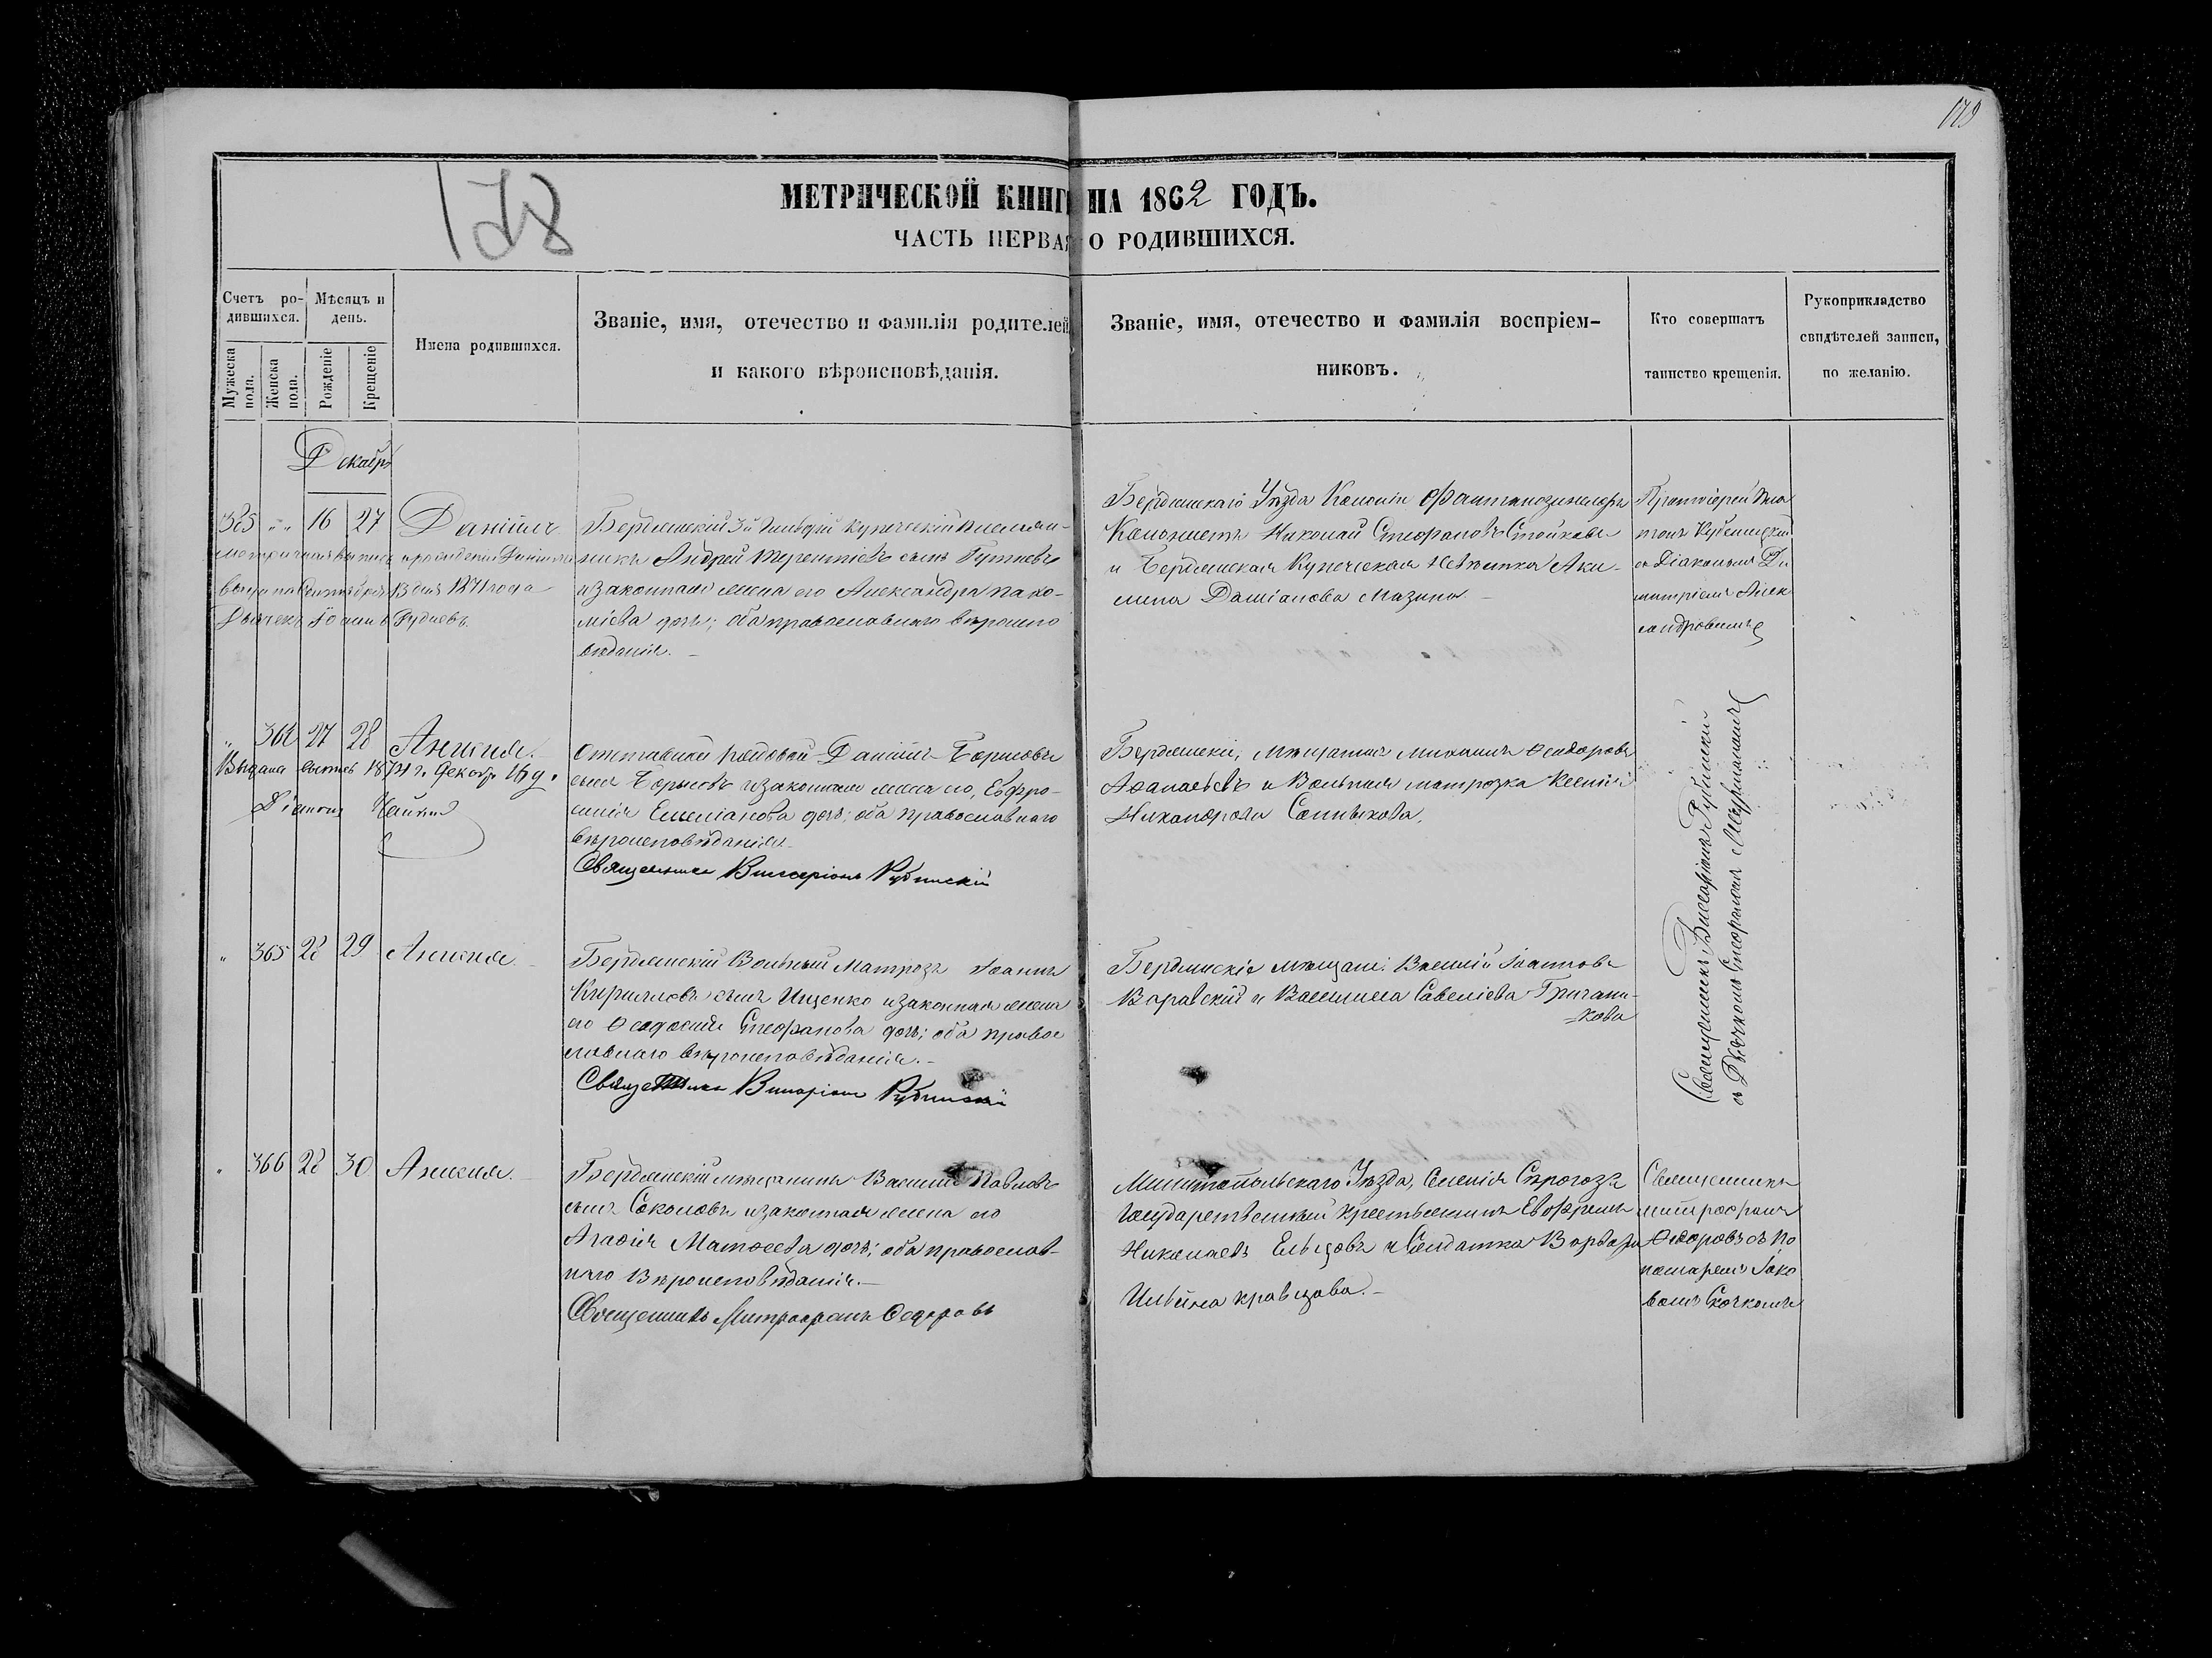 178
178
МЕТРИЧЕСКОЙ КНИГ НА 1862 ГОДЪ.
ЧАСТЬ ПЕРВАЯ О РОДИВШИХСЯ.
Счетъ ро-
дившихся.
Мужеска
пола.
Женска
пола.
Мѣсяцъ и
день.
Рожденіе
Крещеніе
Имена родившихся.
Званіе, имя, отечество и фамилія родителей
и какого вѣроисповѣданія.
Званіе, имя, отечество и фамилія воспріем-
никовъ.
Кто совершатъ
таинство крещенія.
Рукоприкладство
свидѣтелей записи,
по желанію.
Декабрь
385 " 16 27 Даніилъ
Бердянскій 3й гильдіи купеческій племян-
никъ Андрей Терентіевъ сынъ
и законная жена его Александра Пахо-
міева дочь; оба православнаго вѣроиспо
вѣданія.
13 дня 1871 года
Рудневъ
Бердянскаго Уѣзда Колоніи
Колонистъ Николай Стефановъ Стойковъ
и Бердянская Купеческая Аки-
лина Даміанова Мазина
Протоіерей
съ Діакономъ Ди
митріемъ Алек
сандровымъ
" 364 27 28 Анисія.
Выдана 1874 г. Декабр. 16 д.
Отставной рядовой Даніилъ Борисовъ
сынъ Борисовъ и законная жена его, Евфро-
синія Емеліанова дочь; оба православнаго
вѣроисповѣданія.
Священникъ Виссаріонъ Рубинскій
Бердянскіе, мѣщанинъ Михаилъ Ѳеодоровъ
Аѳанасьевъ и Вольная матрозка Ксенія
Никанорова
Священникъ Виссаріонъ Рубинскій
съ Дьячкомъ Стефаномъ
" 365 28 29 Анисія.
Бердянскій Вольный Матрозъ Іоаннъ
Кирилловъ сынъ Ищенко и законная жена
его Ѳеодосія Стефанова дочь; оба правос
лавнаго вѣроисповѣданія.
Священникъ Виссаріонъ Рубинскій
Бердянскіе мѣщане: Василій Іоанновъ
Варавскій и Василиса Савеліева Тригани-
=кова
" 366 28 30 Анисія.
Бердянскій мѣщанинъ Василій Павловъ
сынъ Соколовъ и законная жена его
Агафія Матѳеева дочь; оба православ-
наго вѣроисповѣданія.
Священникъ Митрофанъ Ѳедоровъ
Мелитопольскаго Уѣзда, Селенія Сѣрогозъ
Государственный крестьянинъ Евфремъ
Николаевъ Ельцовъ и Солдатка Варвара
Ильина Кравцова.
Священникъ
Митрофанъ
Ѳедоровъ съ По
номаремъ Іако
вомъ Скочкомъ